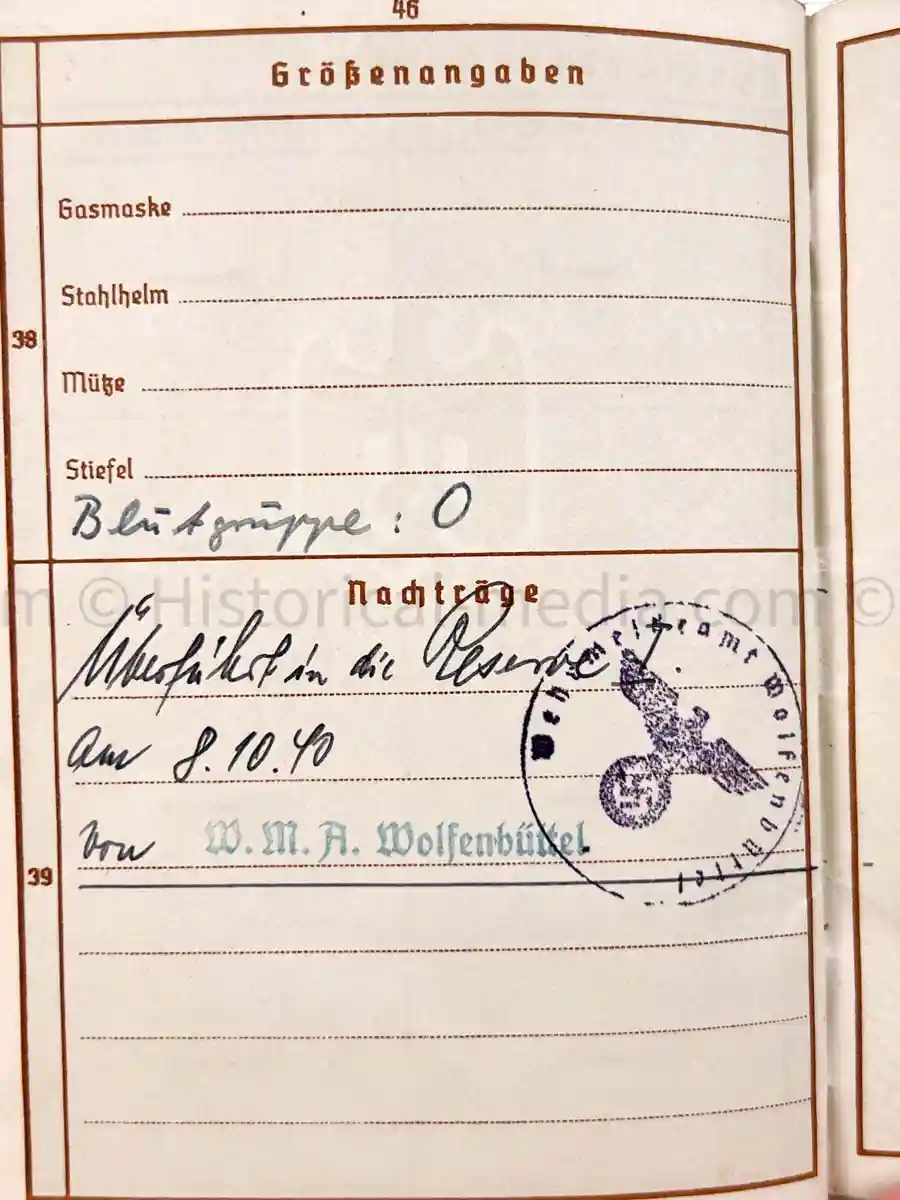 46
Größenangaben
Gasmaske
Stahlhelm
38
Mütze
Stiefel
Blutgruppe: O
Nachträge
m © Historical-media.com ©
Überführt in die Reserve I.
am 8.10.40
von W. M. A. Wolfenbüttel.
Wehrmeldeamt Wolfenbüttel
39